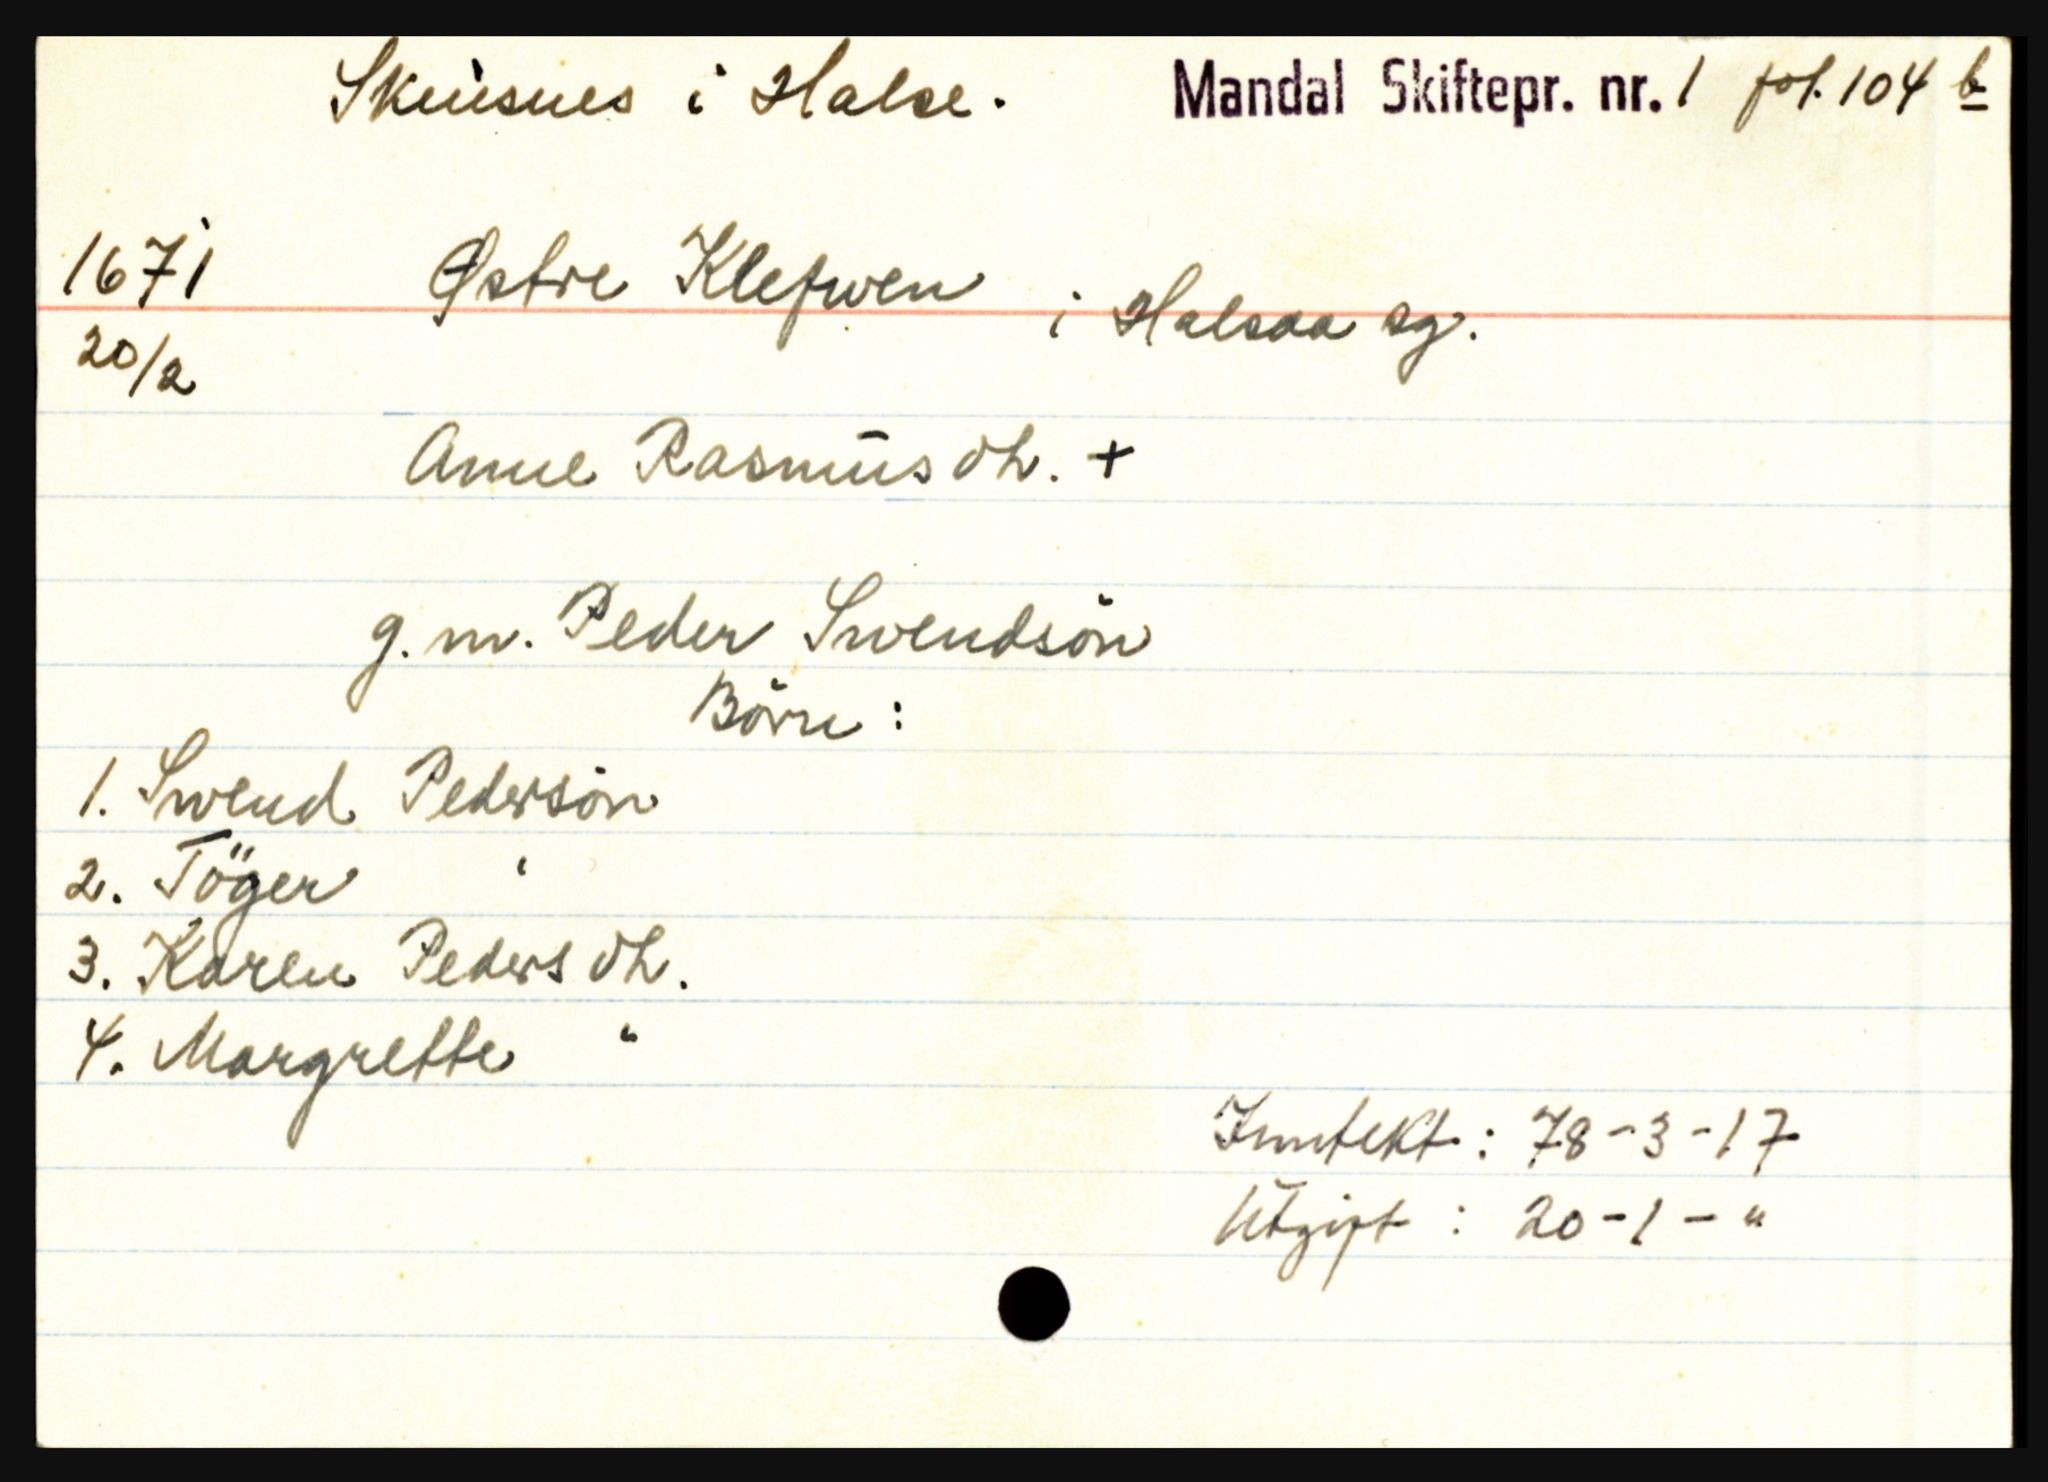 Skeüsnes i Halse. Mandal Skiftepr. nr. 1 fol. 104 b
1671 Østre Klefwen i Halsaa sg.
20/2
Anne Rasmüs dtr. +
g. m. Peder Swendsön
Börn :
1. Swend Pedersön
2. Töger "
3. Karen Peders dtr.
4. Margrette "
Inntekt : 78 - 3 - 17
Utgift : 20 - 1 - "